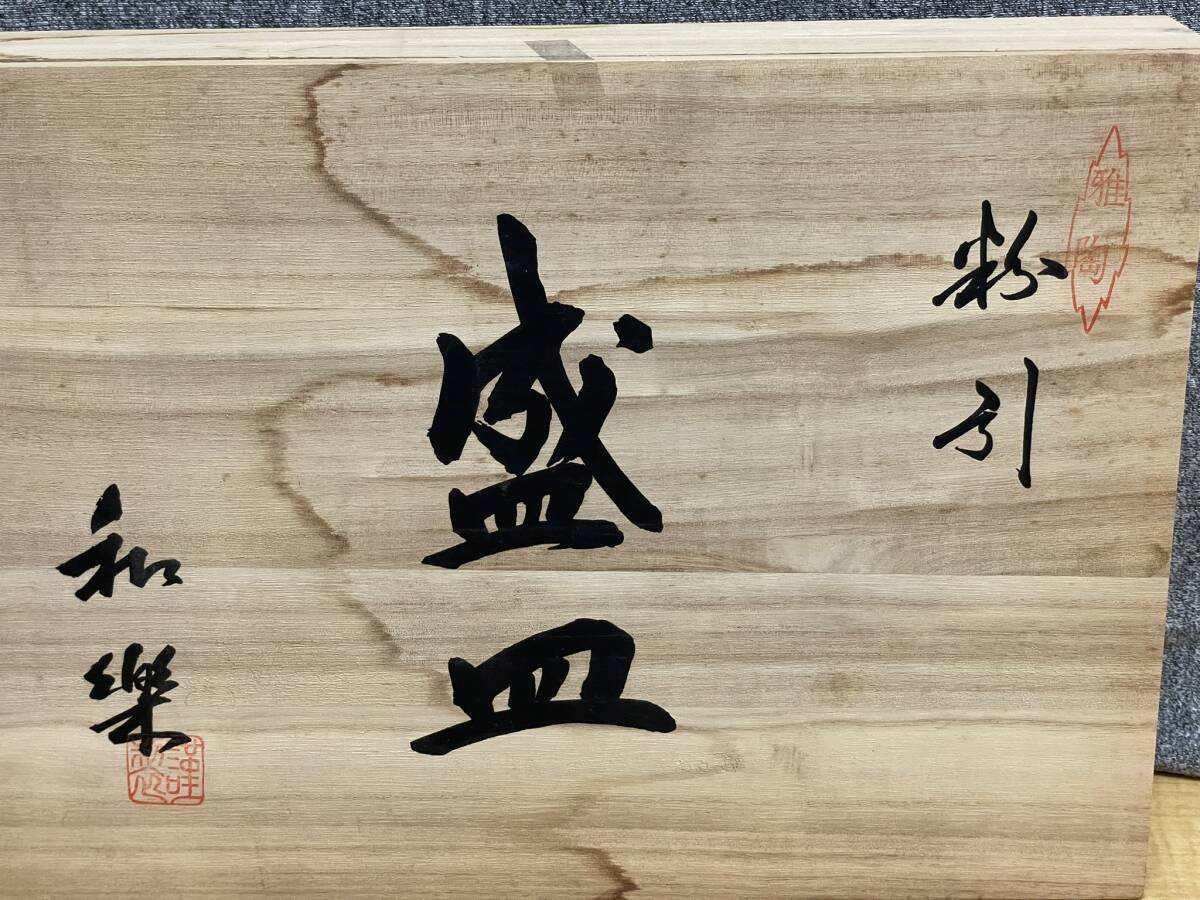 雅陶
粉引
盛皿
和樂